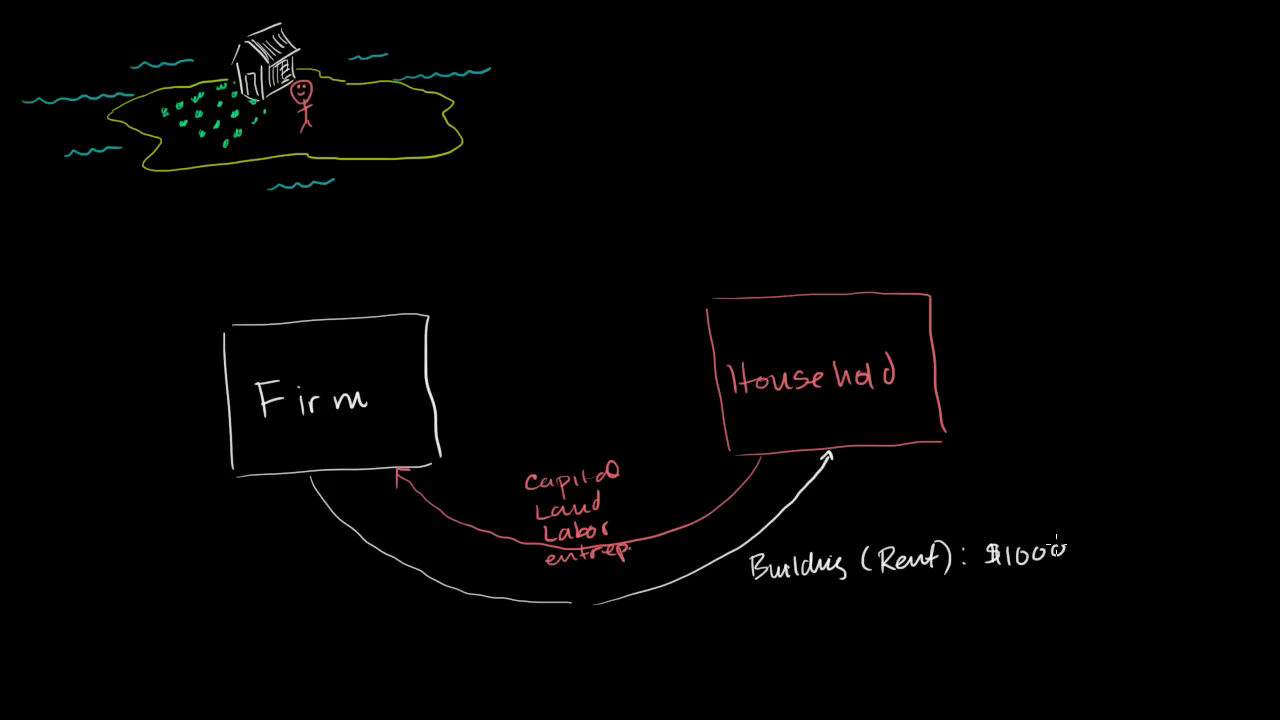 Firm
Household
Capital
Land
Labor
entrep.
Building (Rent): $1000